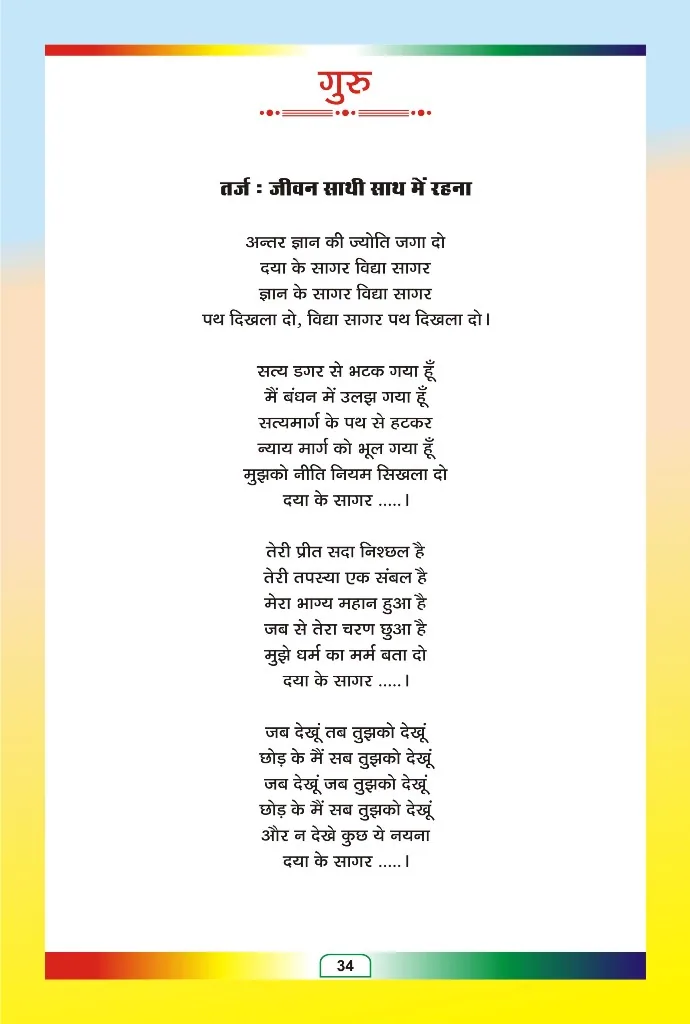 गुरु
तर्ज : जीवन साथी साथ में रहना
अन्तर ज्ञान की ज्योति जगा दो
दया के सागर विद्या सागर
ज्ञान के सागर विद्या सागर
पथ दिखला दो, विद्या सागर पथ दिखला दो।
सत्य डगर से भटक गया हूँ
मैं बंधन में उलझ गया हूँ
सत्यमार्ग के पथ से हटकर
न्याय मार्ग को भूल गया हूँ
मुझको नीति नियम सिखला दो
दया के सागर .....।
तेरी प्रीत सदा निश्छल है
तेरी तपस्या एक संबल है
मेरा भाग्य महान हुआ है
जब से तेरा चरण छुआ है
मुझे धर्म का मर्म बता दो
दया के सागर .....।
जब देखूं तब तुझको देखूं
छोड़ के मैं सब तुझको देखूं
जब देखूं जब तुझको देखूं
छोड़ के मैं सब तुझको देखूं
और न देखे कुछ ये नयना
दया के सागर .....।
34